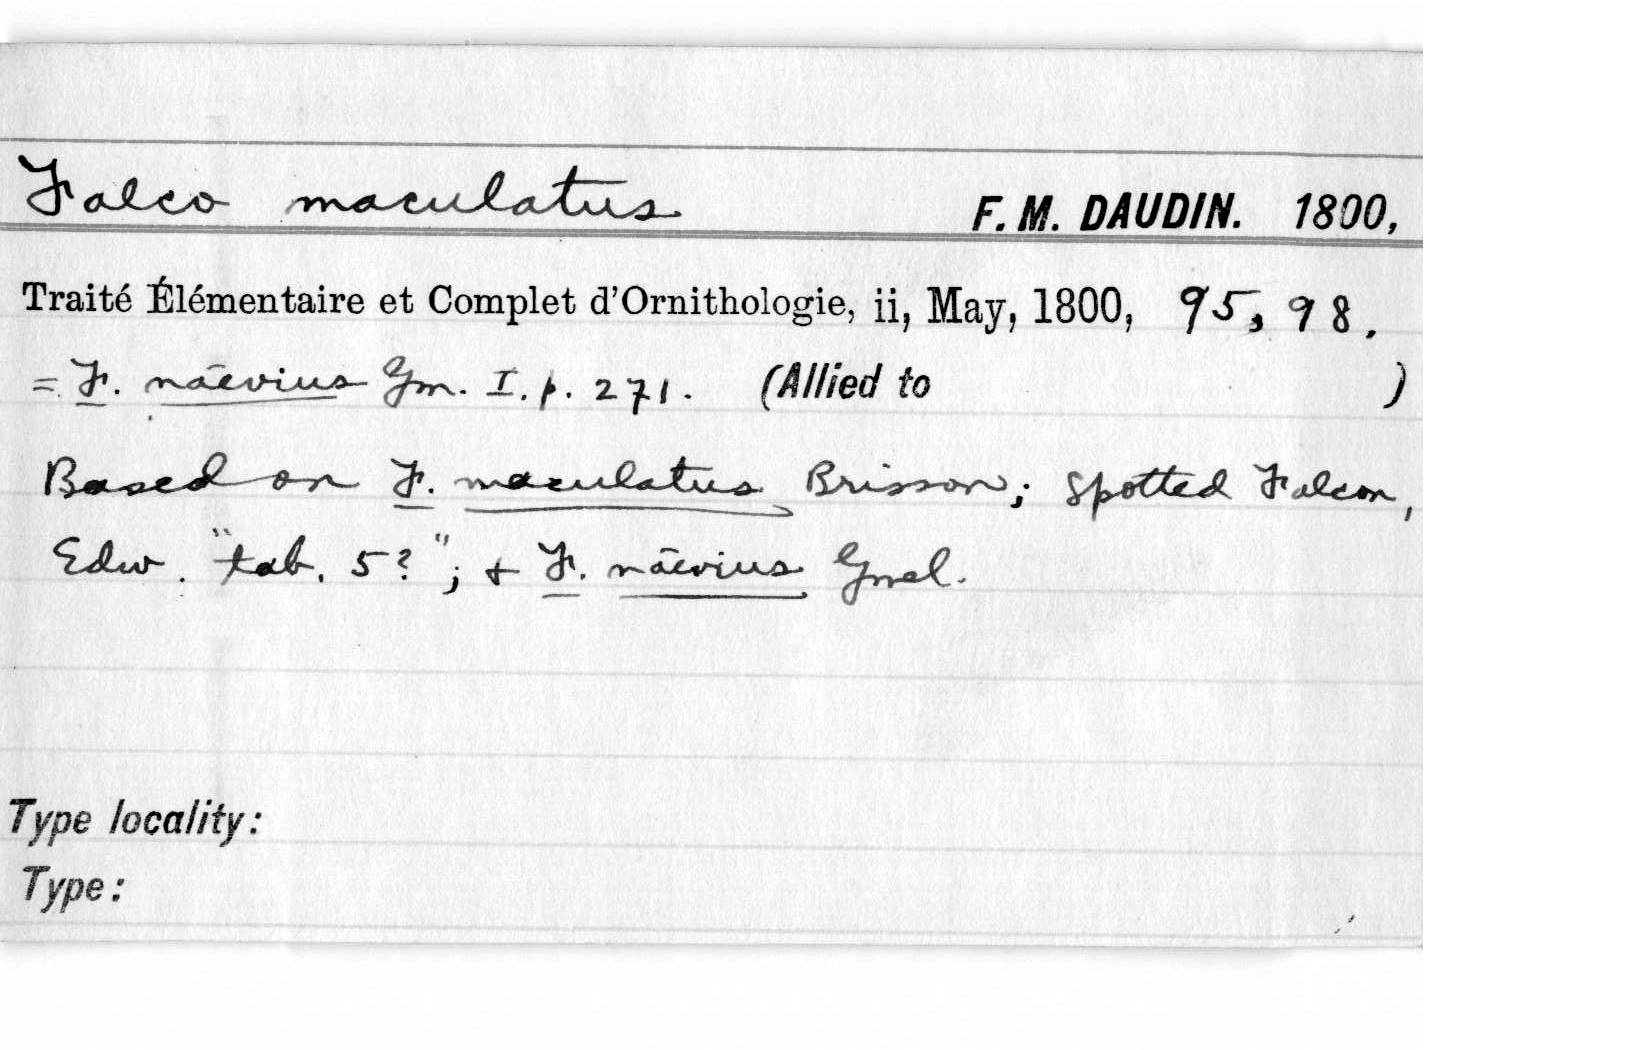 Falco maculatus F. M. DAUDIN. 1800,
Traité Élémentaire et Complet d'Ornithologie, ii, May, 1800, 95, 98.
= F. nāevius Gm. I. p. 271. (Allied to )
Based on F. maculatus Brisson; Spotted Falcon,
Edw. "tab. 5?"; + F. nāevius Gmel.
Type locality:
Type: